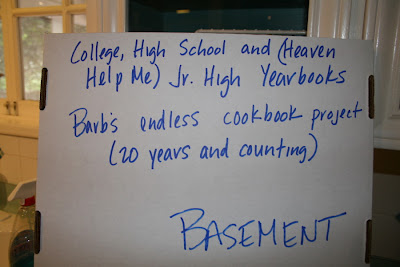 College, High School and (Heaven
Help Me) Jr. High Yearbooks
Barb's endless cookbook project
(20 years and counting)
BASEMENT